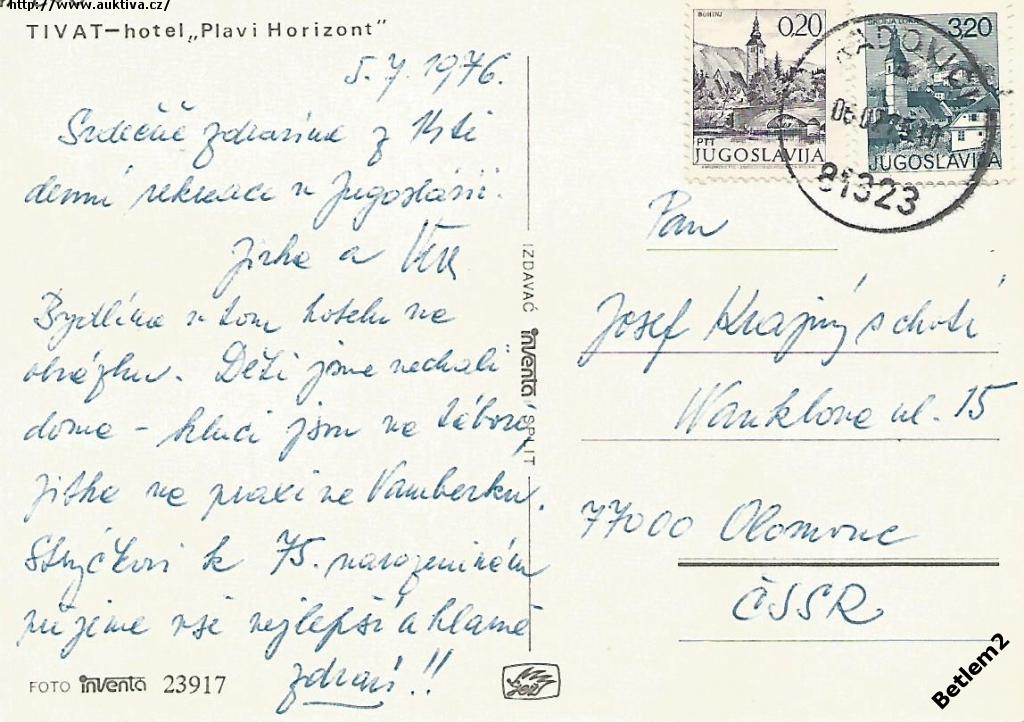 http://www.auktiva.cz/
TIVAT—hotel „Plavi Horizont"
5.7.1976.
Srdečně zdravíme z
denní rekreace v Jugoslávii.
Jirka a Věra
Bydlíme v tom hotelu na
obrázku. Děti jsme nechali
doma - kluci jsou na táboře,
Jitka na praxi ve Vamberku.
Strýčkovi k 75. narozeninám
přejeme vše nejlepší a hlavně
zdraví!!
FOTO inventa 23917
IZDAVAČ inventa SPLIT
BOHINJ
0,20
PTT
JUGOSLAVIJA
ŠKOFJA LOKA
3,20
JUGOSLAVIJA
RADOVIĆI
81323
Pan
Josef Krajný s chotí
Wanklova ul. 15
77000 Olomouc
ČSSR
Betlem2